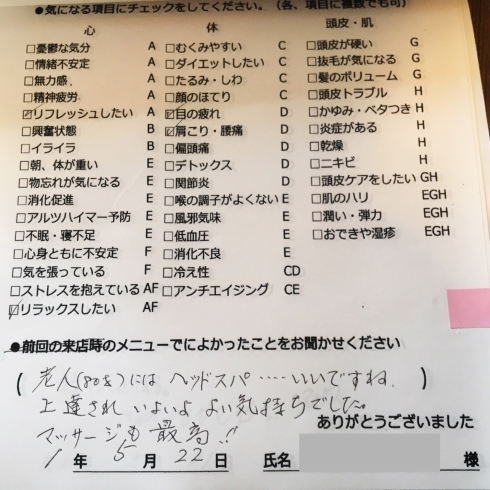 ●気になる項目にチェックをしてください。(各、項目に複数でも可)
心 体 頭皮・肌
□憂鬱な気分 A □むくみやすい C □頭皮が硬い G
□情緒不安定 A □ダイエットしたい C □抜毛が気になる G
□無力感 A □たるみ・しわ C □髪のボリューム G
□精神疲労 A □顔のほてり C □頭皮トラブル H
☑リフレッシュしたい A ☑目の疲れ D □かゆみ・ベタつき H
□興奮状態 B ☑肩こり・腰痛 D □炎症がある H
□イライラ B □偏頭痛 D □乾燥 H
□朝、体が重い E □デトックス D □ニキビ H
□物忘れが気になる E □関節炎 D □頭皮ケアをしたい GH
□消化促進 E □喉の調子がよくない E □肌のハリ EGH
□アルツハイマー予防 E □風邪気味 E □潤い・弾力 EGH
□不眠・寝不足 E □低血圧 E □おできや湿疹 EGH
□心身ともに不安定 F □消化不良 E
□気を張っている F □冷え性 CD
□ストレスを抱えている AF □アンチエイジング CE
☑リラックスしたい AF
●前回の来店時のメニューでによかったことをお聞かせください
(老人(80才)には ヘッドスパ……いいですね。)
上達され いよいよ よい気持ちでした。
マッサージも 最高!!
ありがとうございました
1年 5月 22日 氏名 様